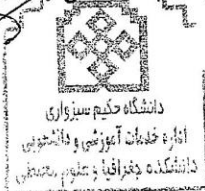 دانشگاه حکیم سبزواری
اداره خدمات آموزشی و دانشجویی
دانشکده جغرافیا و علوم محیطی